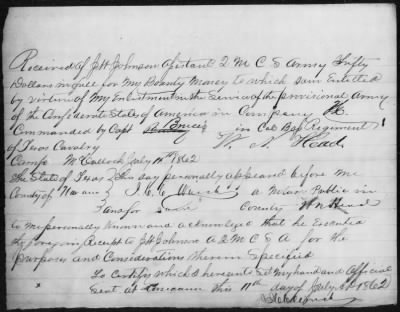 Received of J H Johnson Assistant Q M C S Army Fifty
Dollars in full for My Bounty Money to which I am Entitled
by virtue of My Enlistment in the Service of the provisional Army
of the Confederate States of America in Company H.
Commanded by Capt in Col Regiment
of Texas Cavalry W. N. Head
Camp McCulloch July 11th 1862
The State of Texas This day personally appeared before me
County of a Notary Public in
and for County W N Head
to me personally Known and acknowledged that he Executed
the foregoing Receipt to J H Johnson A Q M C S A for the
purposes and Considerations therein Specified
To Certify which I hereunto Set My hand and Official
Seal at this 11th day of July 1862